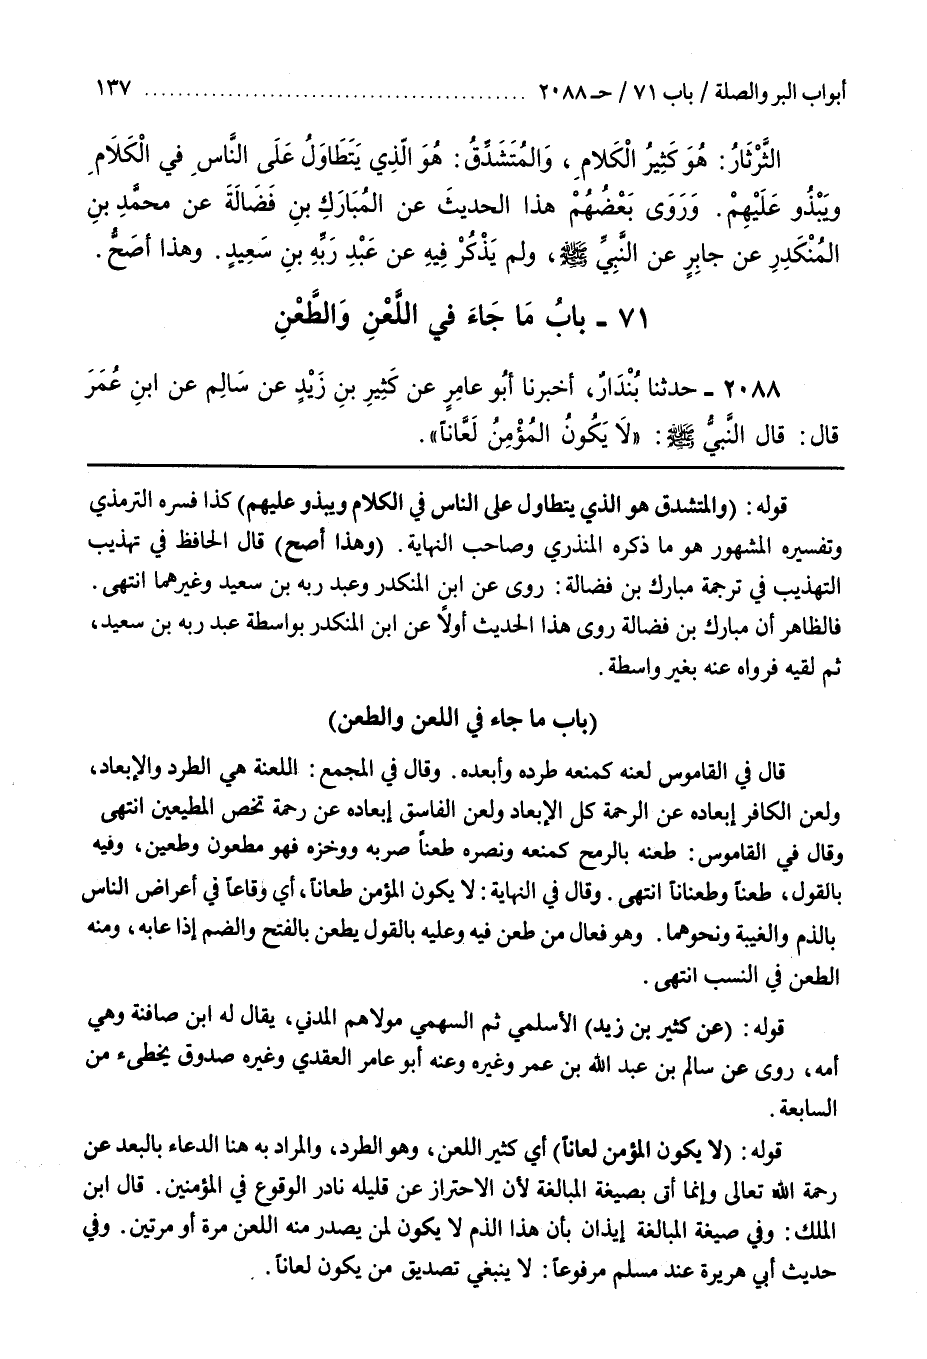 أبواب البر والصلة / باب ٧١ / حـ ٢٠٨٨ ............................................. ١٣٧
الثَّرْثَارُ: هُوَ كَثِيرُ الْكَلَامِ، وَالمُتَشَدِّقُ: هُوَ الّذِي يَتَطَاوَلُ عَلَى النَّاسِ فِي الْكَلَامِ
ويَبْذُو عَلَيْهِمْ. وَرَوَى بَعْضُهُمْ هذا الحديثَ عن المُبَارَكِ بنِ فَضَالَةَ عن محمَّدِ بنِ
المُنْكَدِرِ عن جابِرٍ عن النَّبِيِّ ﷺ، ولم يَذْكُرْ فِيهِ عن عَبْدِ رَبِّهِ بنِ سَعِيدٍ. وهذا أصَحُّ.
٧١ ـ بابُ مَا جَاءَ في اللَّعْنِ وَالطَّعْنِ
٢٠٨٨ ـ حدثنا بُنْدَارٌ، أخبرنا أبُو عامِرٍ عن كَثِيرِ بنِ زَيْدٍ عن سَالِم عن ابنِ عُمَرَ
قال: قال النَّبيُّ ﷺ: «لَا يَكُونُ المُؤْمِنُ لَعَّاناً».
قوله: (والمتشدق هو الذي يتطاول على الناس في الكلام ويبذو عليهم) كذا فسره الترمذي
وتفسيره المشهور هو ما ذكره المنذري وصاحب النهاية. (وهذا أصح) قال الحافظ في تهذيب
التهذيب في ترجمة مبارك بن فضالة: روى عن ابن المنكدر وعبد ربه بن سعيد وغيرهما انتهى.
فالظاهر أن مبارك بن فضالة روى هذا الحديث أولاً عن ابن المنكدر بواسطة عبد ربه بن سعيد،
ثم لقيه فرواه عنه بغير واسطة.
(باب ما جاء في اللعن والطعن)
قال في القاموس لعنه كمنعه طرده وأبعده. وقال في المجمع: اللعنة هي الطرد والإبعاد،
ولعن الكافر إبعاده عن الرحمة كل الإبعاد ولعن الفاسق إبعاده عن رحمة تخص المطيعين انتهى
وقال في القاموس: طعنه بالرمح كمنعه ونصره طعناً ضربه ووخزه فهو مطعون وطعين، وفيه
بالقول، طعناً وطعناناً انتهى. وقال في النهاية: لا يكون المؤمن طعاناً، أي وقاعاً في أعراض الناس
بالذم والغيبة ونحوهما. وهو فعال من طعن فيه وعليه بالقول يطعن بالفتح والضم إذا عابه، ومنه
الطعن في النسب انتهى.
قوله: (عن كثير بن زيد) الأسلمي ثم السهمي مولاهم المدني، يقال له ابن صافنة وهي
أمه، روى عن سالم بن عبد الله بن عمر وغيره وعنه أبو عامر العقدي وغيره صدوق يخطىء من
السابعة.
قوله: (لا يكون المؤمن لعاناً) أي كثير اللعن، وهو الطرد، والمراد به هنا الدعاء بالبعد عن
رحمة الله تعالى وإنما أتى بصيغة المبالغة لأن الاحتراز عن قليله نادر الوقوع في المؤمنين. قال ابن
الملك: وفي صيغة المبالغة إيذان بأن هذا الذم لا يكون لمن يصدر منه اللعن مرة أو مرتين. وفي
حديث أبي هريرة عند مسلم مرفوعاً: لا ينبغي تصديق من يكون لعاناً.